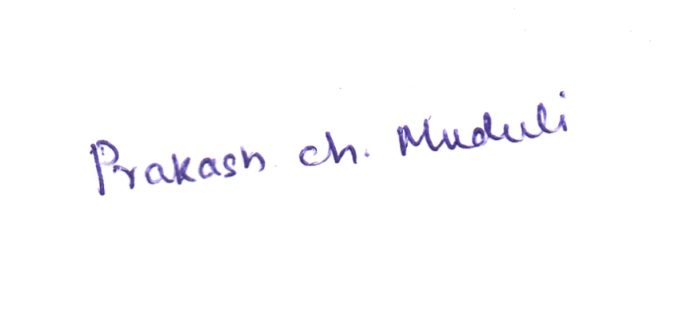 Prakash ch. Muduli